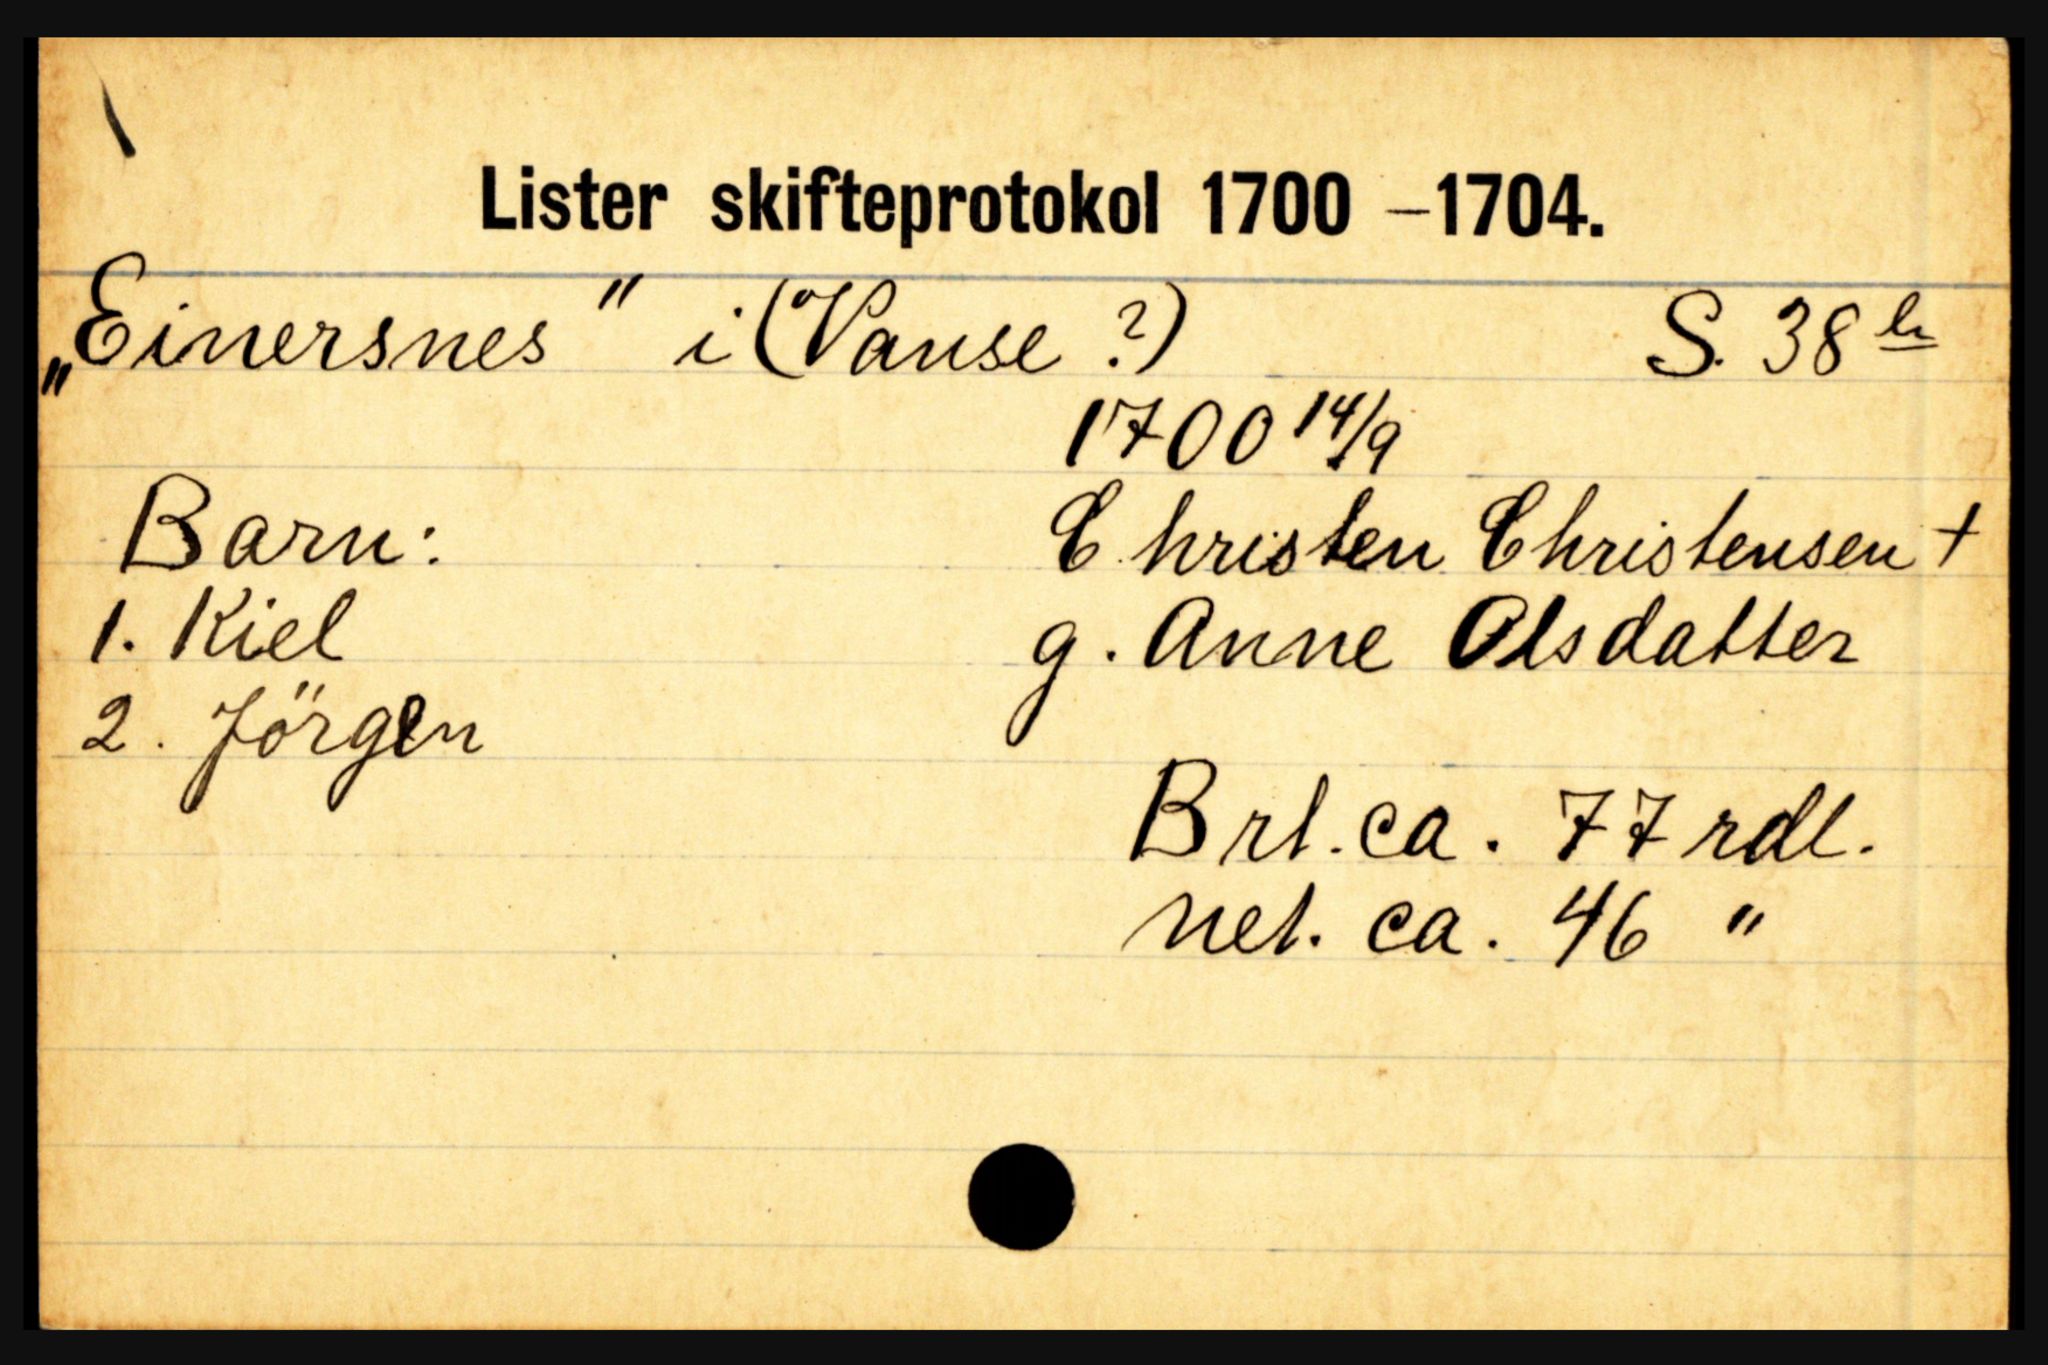 Lister skifteprotokol 1700 – 1704.
„Einersnes" i (Vanse ?) S. 38
1700 14/9
Barn: Christen Christensen +
1. Kiel g. Anne Olsdatter
2. Jörgen
Brt. ca. 77 rdl.
net. ca. 46 "